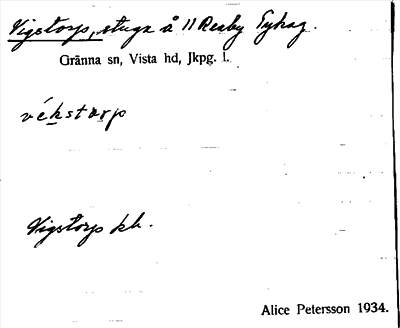 Vigstorp, stuga å 11 Reaby Tykag.
Gränna sn, Vista hd, Jkpg. l.
vékstorp
Vigstorp kh.
Alice Petersson 1934.